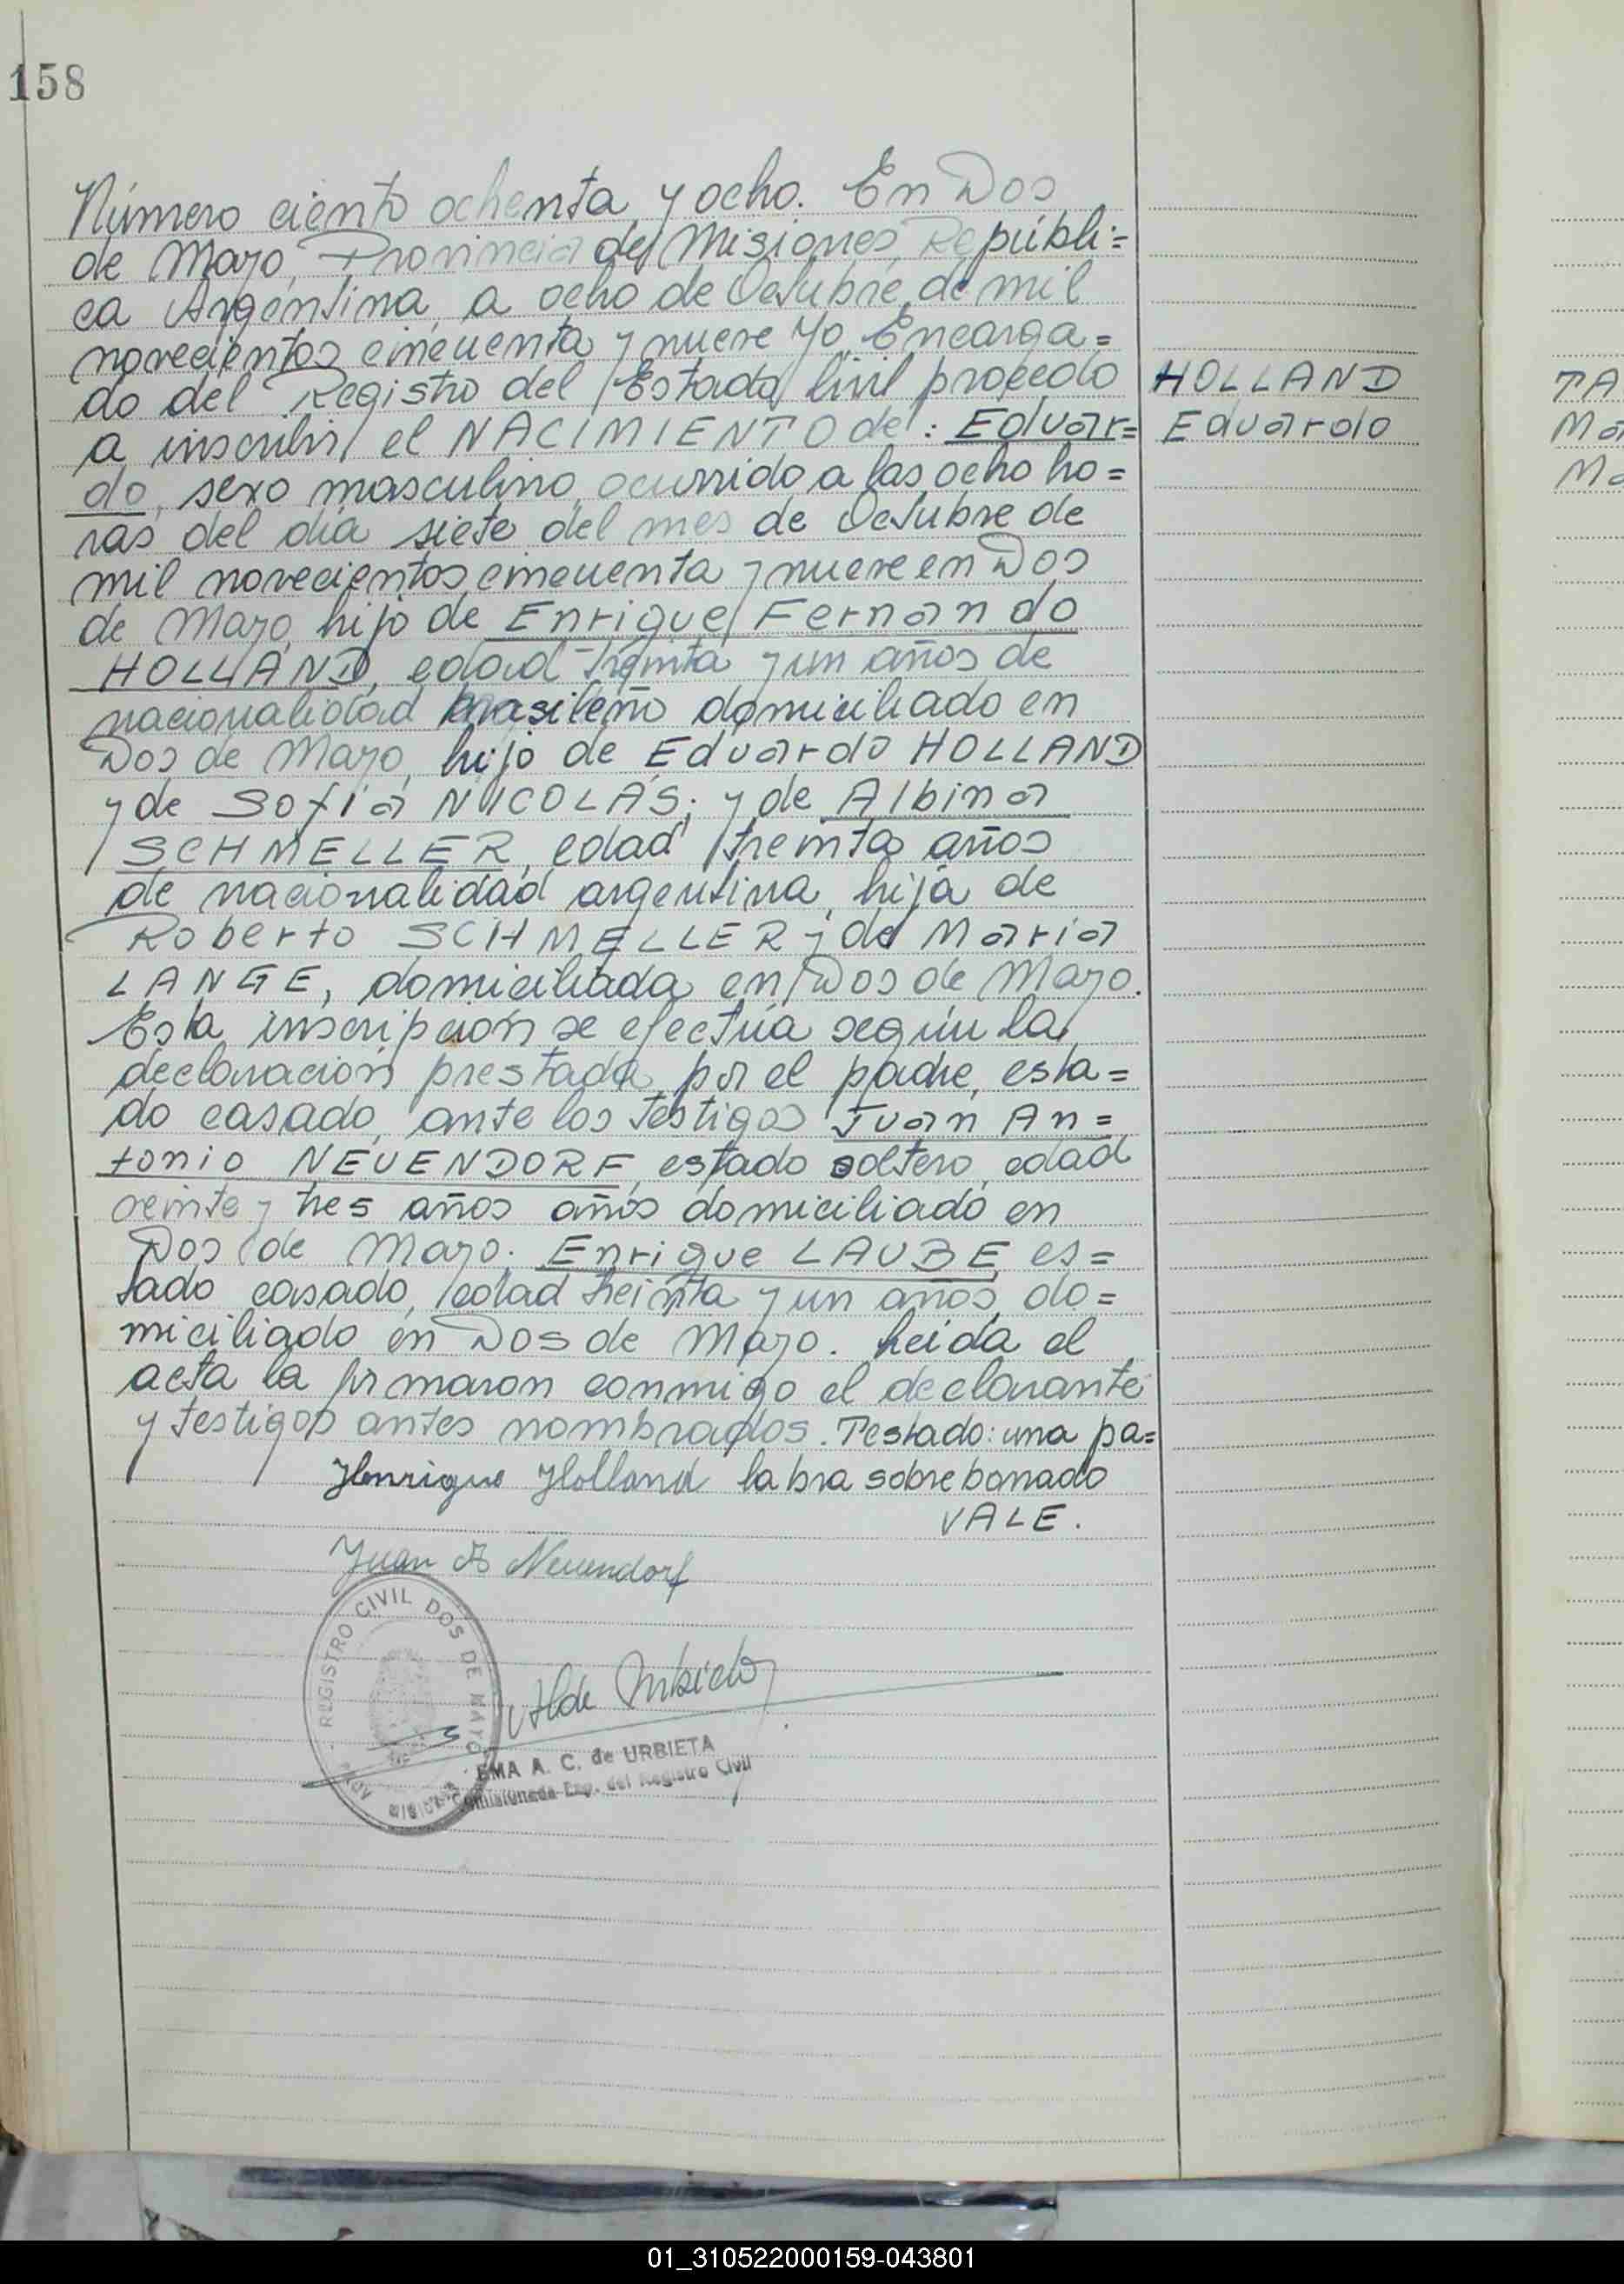 158
Número ciento ochenta y ocho. En Dos
de Mayo, Provincia de Misiones, Repúbli=
ca Argentina, a ocho de Octubre de mil
novecientos cincuenta y nueve Yo, Encarga=
do del Registro del Estado Civil procedo
a inscribir el NACIMIENTO de: Eduar=
do, sexo masculino, ocurrido a las ocho ho=
ras del día siete del mes de Octubre de
mil novecientos cincuenta y nueve en Dos
de Mayo, hijo de Enrique Fernando
HOLLAND, edad treinta y un años de
nacionalidad brasileño domiciliado en
Dos de Mayo, hijo de Eduardo HOLLAND
y de Sofía NICOLÁS; y de Albina
SCHMELLER, edad treinta años
de nacionalidad argentina, hija de
Roberto SCHMELLER y de María
LANGE, domiciliada en Dos de Mayo.
Esta inscripción se efectúa según la
declaración prestada por el padre, esta=
do casado, ante los testigos Juan An=
tonio NEUENDORF, estado soltero, edad
veinte y tres años años domiciliado en
Dos de Mayo. Enrique LAUBE, es=
tado casado, edad treinta y un años, do=
miciliado en Dos de Mayo. Leída el
acta la firmaron conmigo el declarante
y testigos antes nombrados. Testado: una pa=
Henrique Holland labra sobreborrado
VALE.
Juan A Neuendorf
REGISTRO CIVIL DOS DE MAYO
EMA A. C. de URBIETA
Comisionada Enp. del Registro Civil
HOLLAND
Eduardo
TA
Ma
Ma
01_310522000159-043801